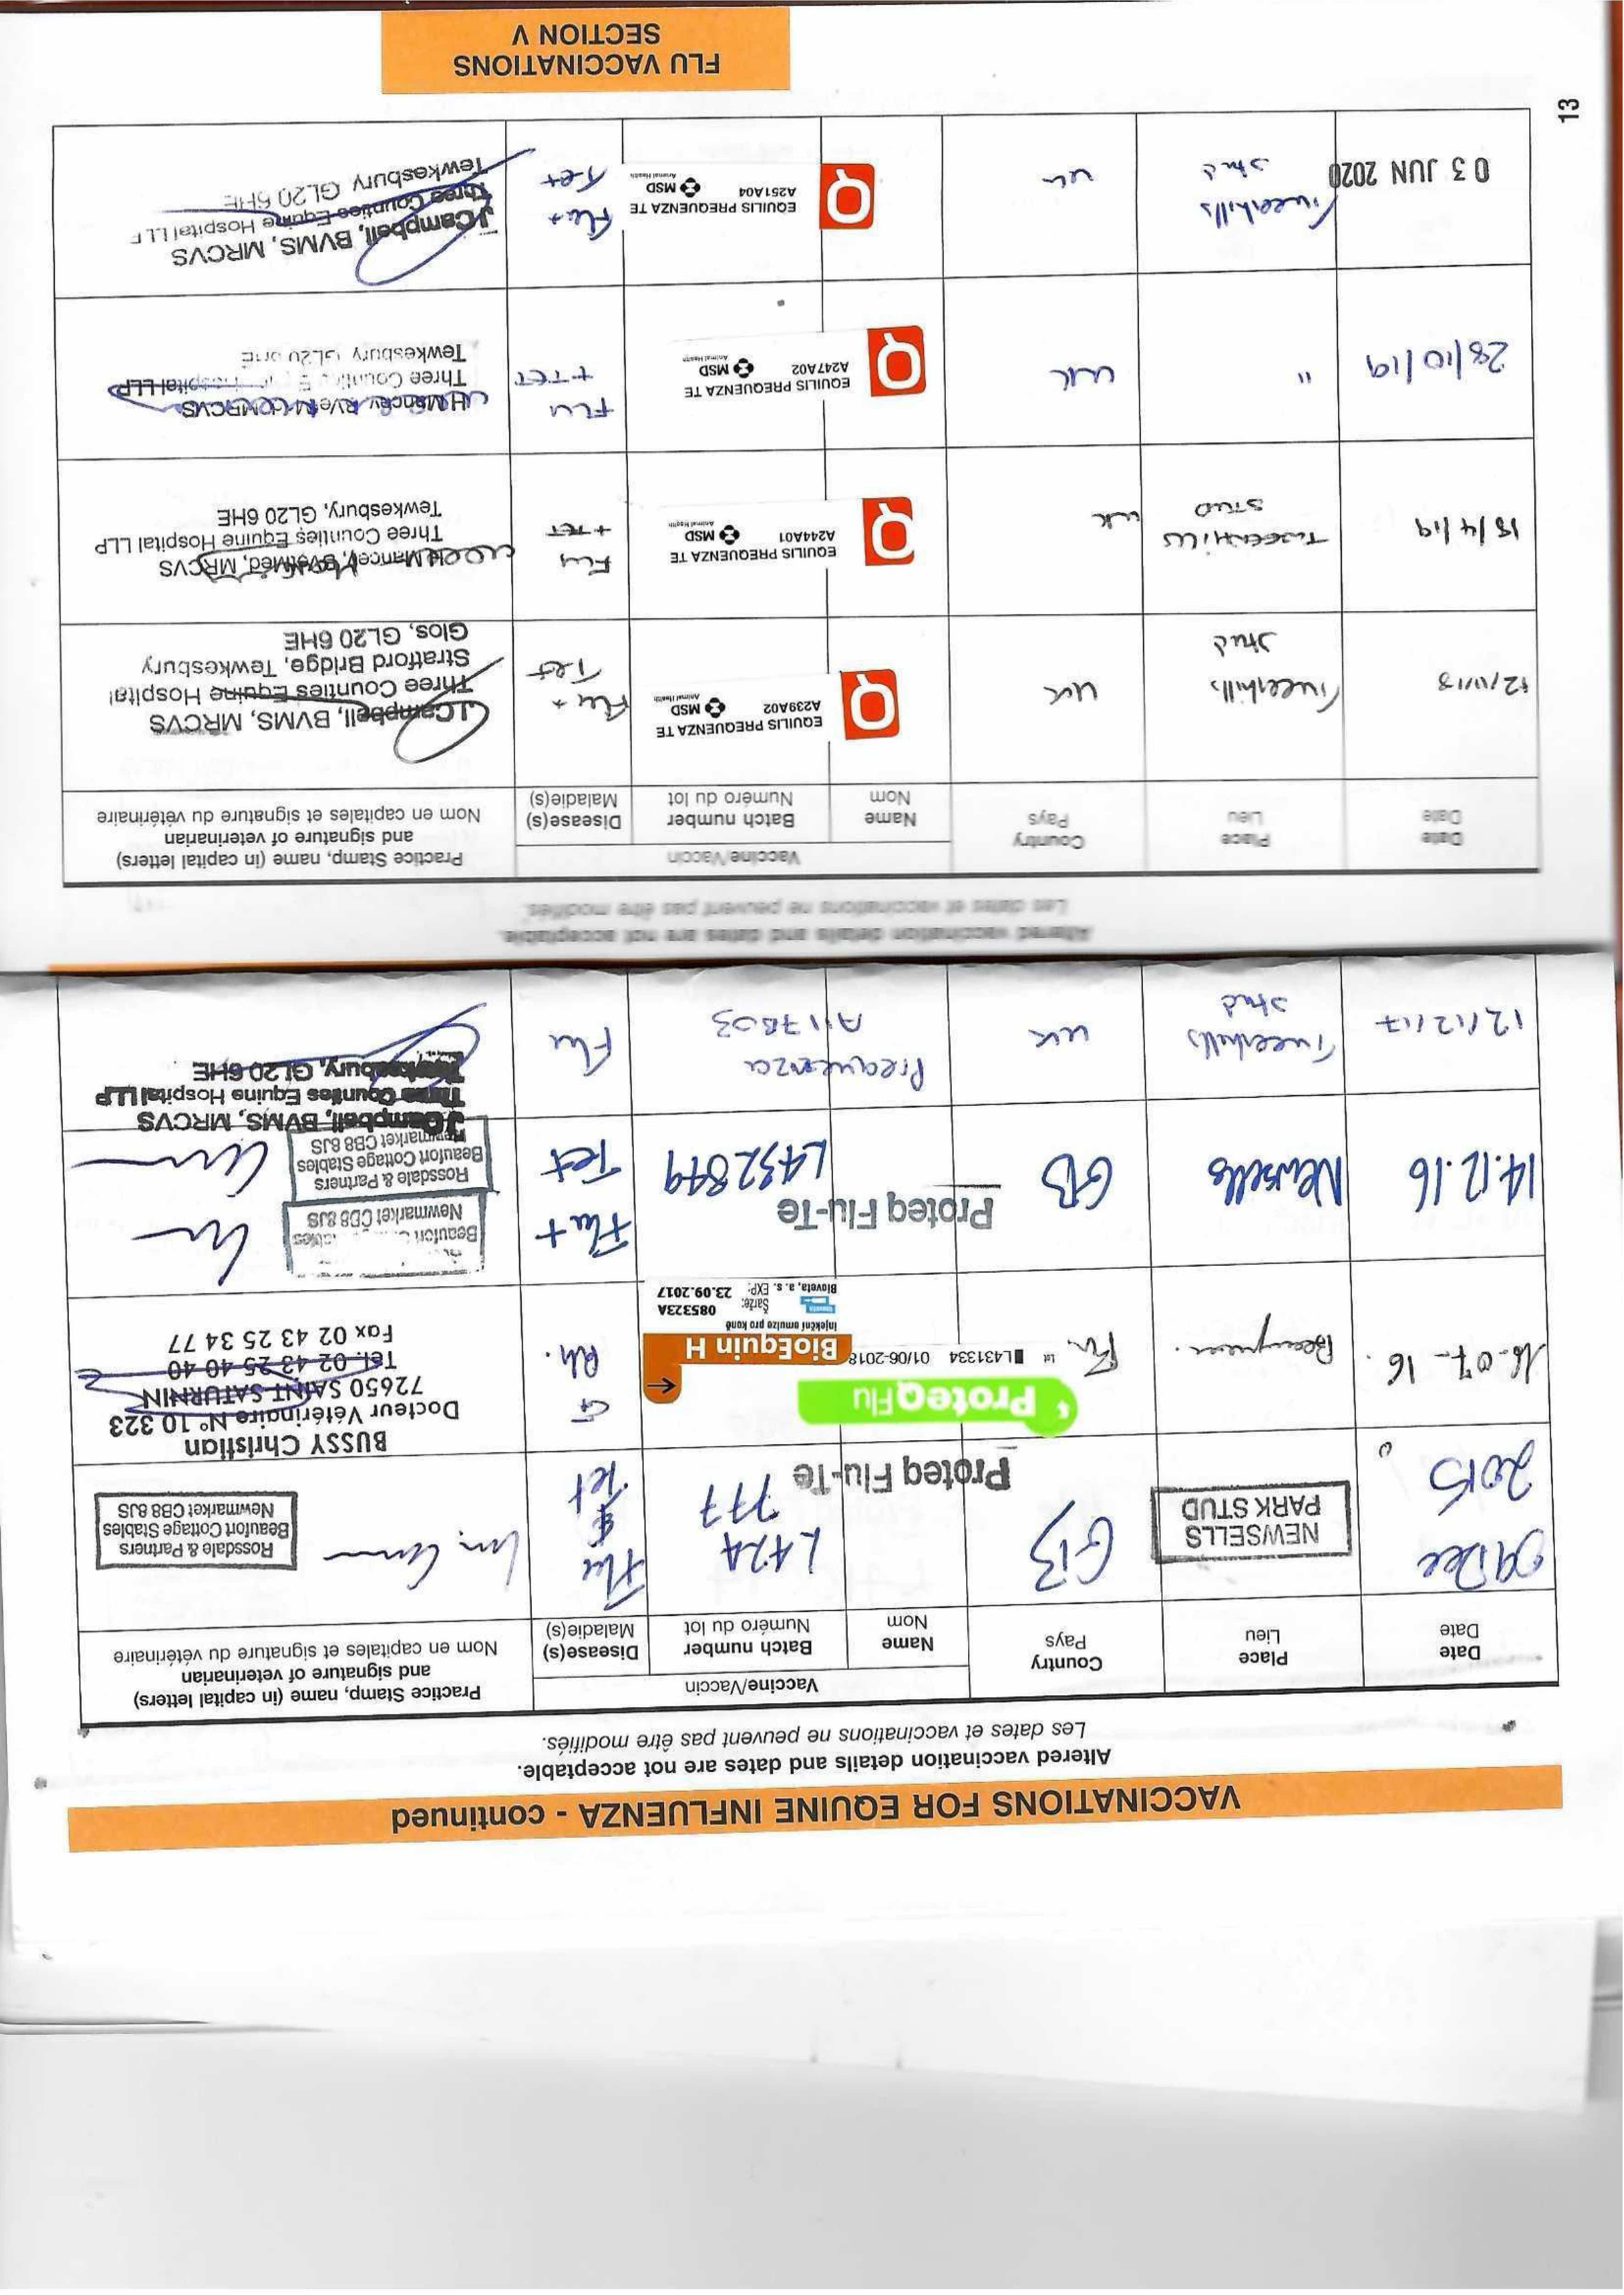 VACCINATIONS FOR EQUINE INFLUENZA - continued
Altered vaccination details and dates are not acceptable.
Les dates et vaccinations ne peuvent pas être modifiés.
Date
Date
Place
Lieu
Country
Pays
Vaccine/Vaccin
Name
Nom
Batch number
Numéro du lot
Disease(s)
Maladie(s)
Practice Stamp, name (in capital letters)
and signature of veterinarian
Nom en capitales et signature du vétérinaire
09 Dec
2015
NEWSELLS
PARK STUD
GB
L424
777
Proteq Flu-Te
Flu
Tet
Rossdale & Partners
Beaufort Cottage Stables
Newmarket CB8 8JS
16-07-16.
ProteqFlu
Lot L431334 01/06-2018
BioEquin H
injekční emulze pro koně
Šarže: 085323A
Bioveta, a. s. EXP: 23.09.2017
G
Rh.
BUSSY Christian
Docteur Vétérinaire N° 10 323
72650 SAINT SATURNIN
Tél. 02 43 25 40 40
Fax 02 43 25 34 77
14.12.16
Newsells
GB
Proteq Flu-Te
L432849
Flu +
Tet
Beaufort
Newmarket CB8 8JS
Rossdale & Partners
Beaufort Cottage Stables
Newmarket CB8 8JS
12/12/17
Tweenhills
Stud
UK
Prequenza
A117B03
Flu
J Campbell, BVMS, MRCVS
Three Counties Equine Hospital LLP
Tewkesbury, GL20 6HE
Altered vaccination details and dates are not acceptable.
Les dates et vaccinations ne peuvent pas être modifiés.
Date
Date
Place
Lieu
Country
Pays
Vaccine/Vaccin
Name
Nom
Batch number
Numéro du lot
Disease(s)
Maladie(s)
Practice Stamp, name (in capital letters)
and signature of veterinarian
Nom en capitales et signature du vétérinaire
12/11/18
Tweenhills
Stud
UK
EQUILIS PREQUENZA TE
A239A02 MSD
Animal Health
Flu +
Tet
J Campbell, BVMS, MRCVS
Three Counties Equine Hospital
Stratford Bridge, Tewkesbury
Glos, GL20 6HE
18/4/19
TWEENHILLS
STUD
UK
EQUILIS PREQUENZA TE
A244A01 MSD
Animal Health
Flu
+ TET
H Mancey, BVetMed, MRCVS
Three Counties Equine Hospital LLP
Tewkesbury, GL20 6HE
28/10/19
"
UK
EQUILIS PREQUENZA TE
A247A02 MSD
Animal Health
FLU
+ TET
H Mancey, BVetMed, MRCVS
Three Counties Hospital LLP
Tewkesbury GL20 6HE
03 JUN 2020
Tweenhills
Stud
UK
EQUILIS PREQUENZA TE
A251A04 MSD
Animal Health
Flu +
Tet
J Campbell, BVMS, MRCVS
Three Counties Equine Hospital LLP
Tewkesbury GL20 6HE
13
FLU VACCINATIONS
SECTION V